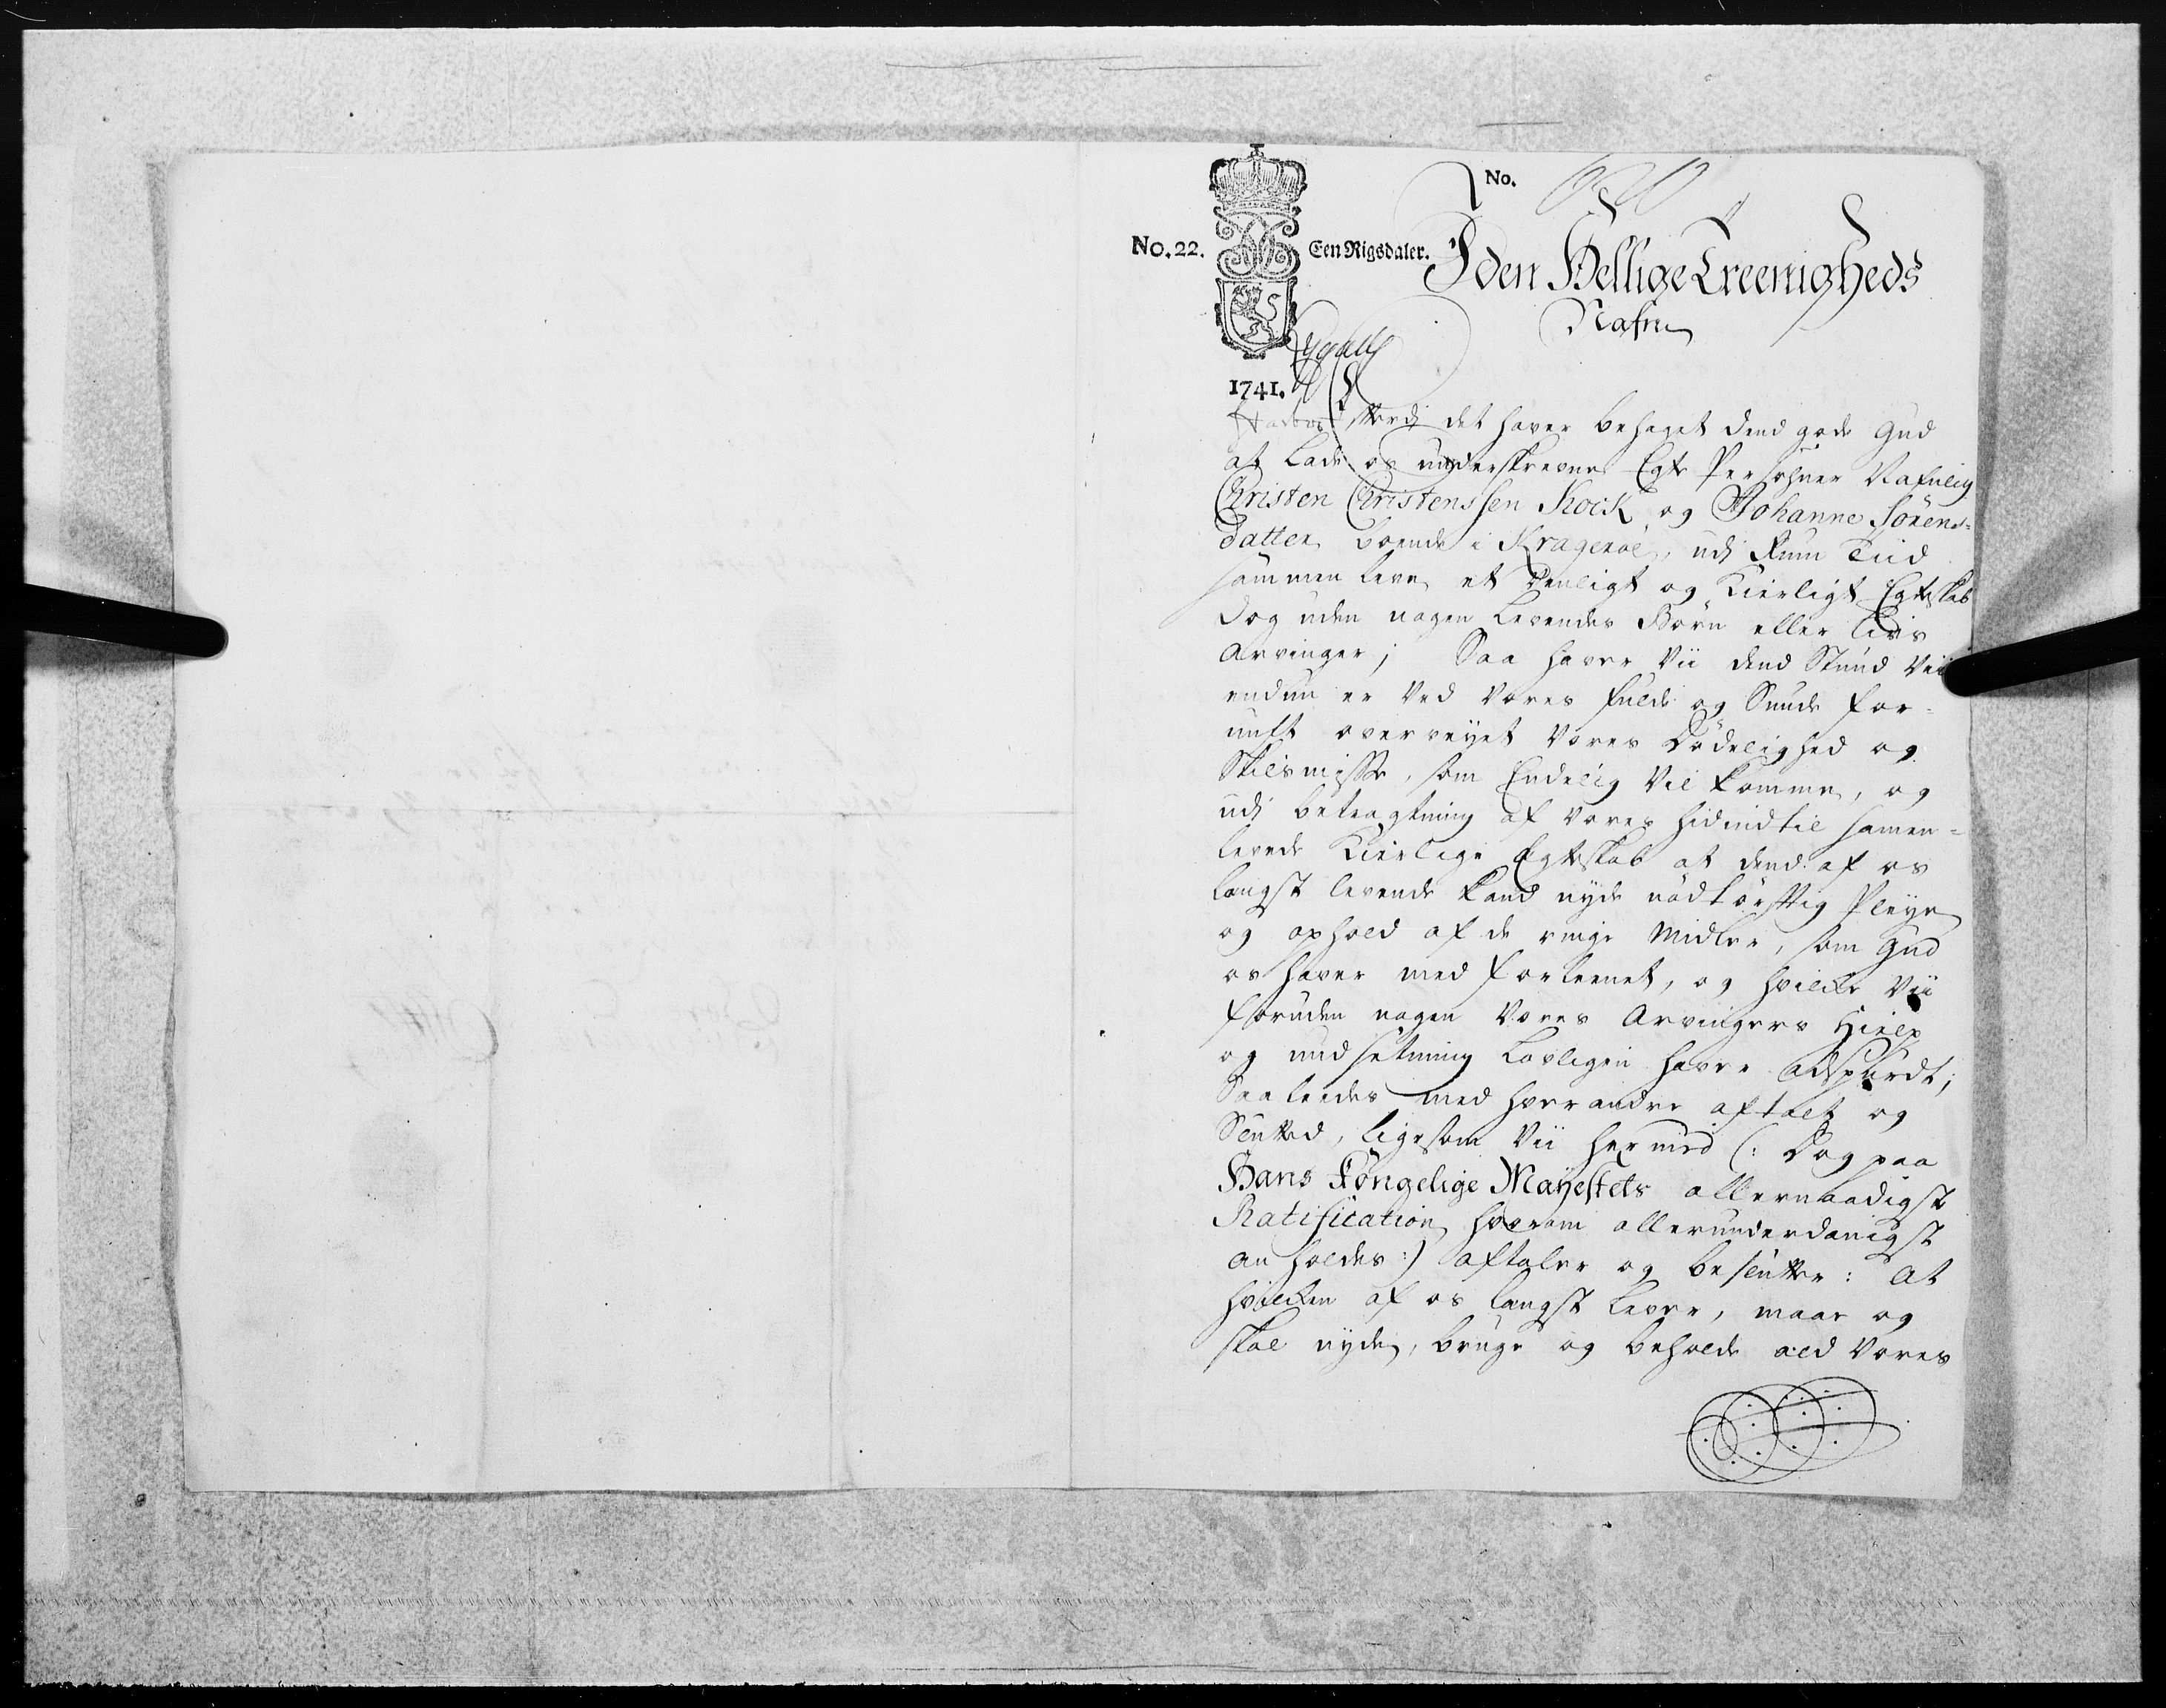 No.
No. 22.
Een Rigsdaler.
I den Hellige Treenigheds
Nafn
1741.
det haver behaget dend gode Gud
at lade os underskrevne Egte Persohner Nafnlig
Christen Christenssen Kock og Johanne Sörens-
datter boende i Krageröe, udj Rum Tiid
sammen leve et Venligt og Kierligt Egteskab
dog uden nogen levendes Börn eller Livs
Arvinger; Saa haver Vii dend Stund Vii
endnu er ved vores fulde og Sunde for-
nuft overveyet vores Dödelighed og
Skilsmisse, som Endelig vil komme, og
udj betragtning af vores hidindtil samen-
levede Kierlige Egteskab at dend af os
længst levende kand nyde nödtörftig Pleye
og ophold af de ringe Midler, som Gud
os haver med forleenet, og hvilcke Vii
foruden nogen vores Arvingers Hielp
og undsetning lovligen haver adspurdt;
Saaleedes med hverandre aftalt og
Slutted, ligesom Vii hermed (: Dog paa
Hans Kongelige Mayestets allernaadigst
Ratification hvorom allerunderdanigst
anholdes :) aftaler og besluter: At
hvilcken af os længst lever, maae og
skal nyde, bruge og beholde ald vores